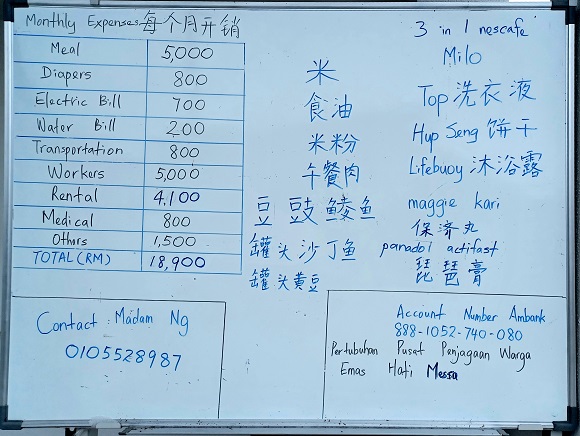 Monthly Expenses 每个月开销
Meal 5,000
Diapers 800
Electric Bill 700
Water Bill 200
Transportation 800
Workers 5,000
Rental 4,100
Medical 800
Others 1,500
TOTAL (RM) 18,900
米
食油
米粉
午餐肉
豆豉鲮鱼
罐头沙丁鱼
罐头黄豆
3 in 1 nescafe
Milo
Top 洗衣液
Hup Seng 饼干
Lifebuoy 沐浴露
maggie kari
保济丸
panadol actifast
琵琶膏
Contact: Madam Ng
0105528987
Account Number Ambank
888-1052-740-080
Pertubuhan Pusat Penjagaan Warga
Emas Hati Messa